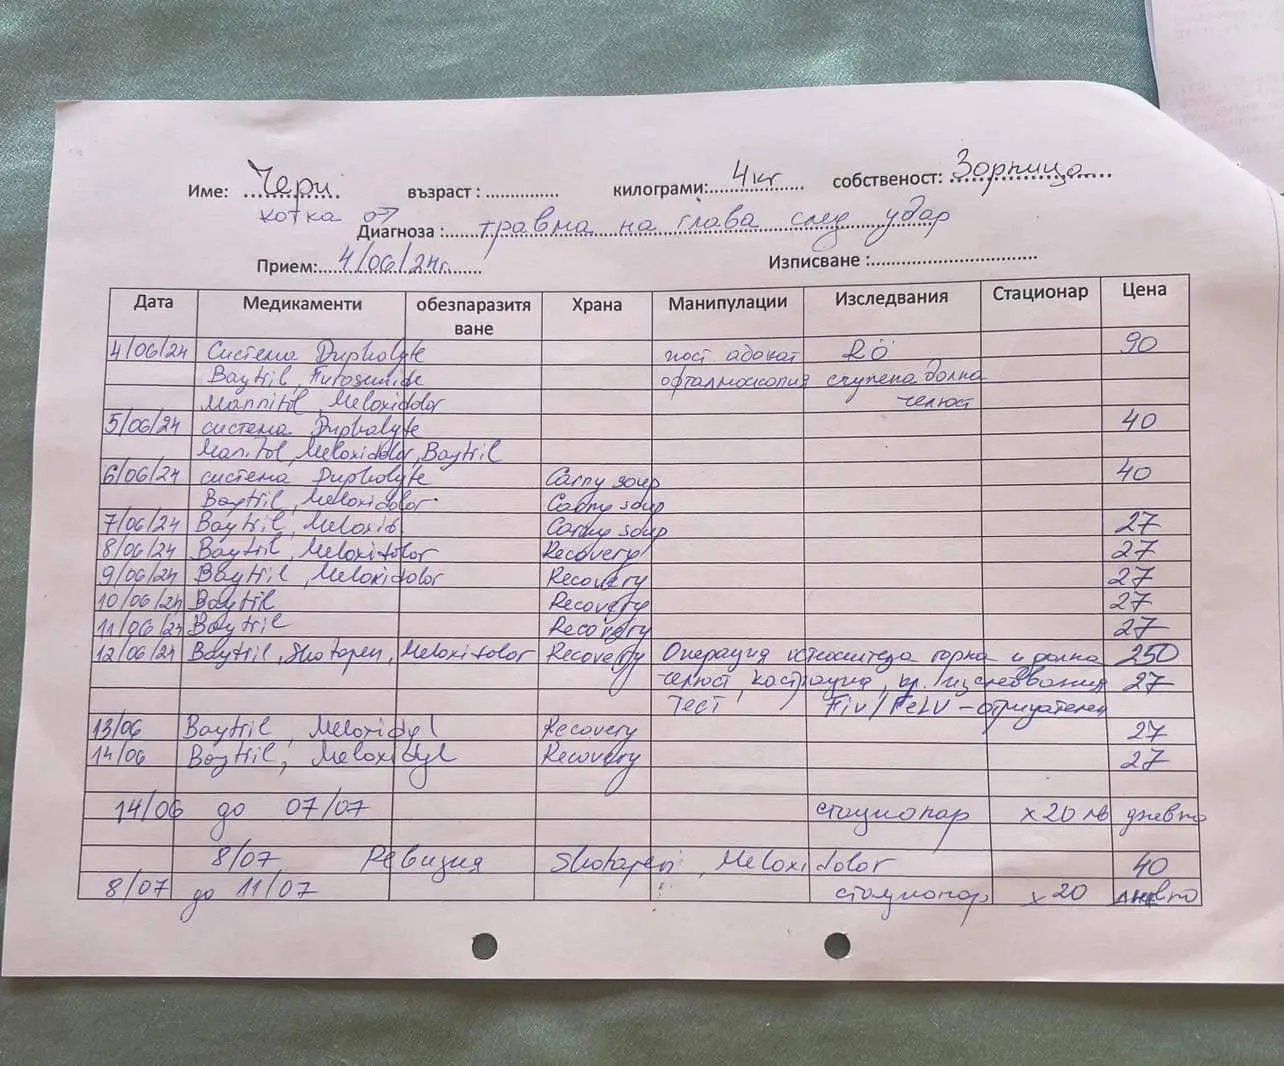 Име: Чери възраст : килограми: 4 кг собственост: Зорница
котка от
Диагноза : травма на глава след удар
Прием: 4/06/24г. Изписване :
Дата Медикаменти обезпаразитя Храна Манипулации Изследвания Стационар Цена
ване
4/06/24 Система Duphalyte пост. RÖ 90
Baytril, Furosemide офталмоскопия счупена долна
Mannitol, Meloxidolor челюст
5/06/24 система Duphalyte 40
Manitol, Meloxidolor, Baytril
6/06/24 система Duphalyte Carny soup 40
Baytril, Meloxidolor Carny soup
7/06/24 Baytril, Meloxid Carny soup 27
8/06/24 Baytril, Meloxidolor Recovery 27
9/06/24 Baytril, Meloxidolor Recovery 27
10/06/24 Baytril Recovery 27
11/06/24 Baytril Recovery 27
12/06/24 Baytril, Shotapen, Meloxidolor Recovery Операция остеосинтеза горна и долна 250
челюст, кастрация, кр. изследвания 27
Тест Fiv/FeLV - отрицателен
13/06 Baytril, Meloxidyl Recovery 27
14/06 Baytril, Meloxidyl Recovery 27
14/06 до 07/07 стационар x 20 лв дневно
8/07 Ревизия Shotapen, Meloxidolor 40
8/07 до 11/07 стационар x 20 дневно